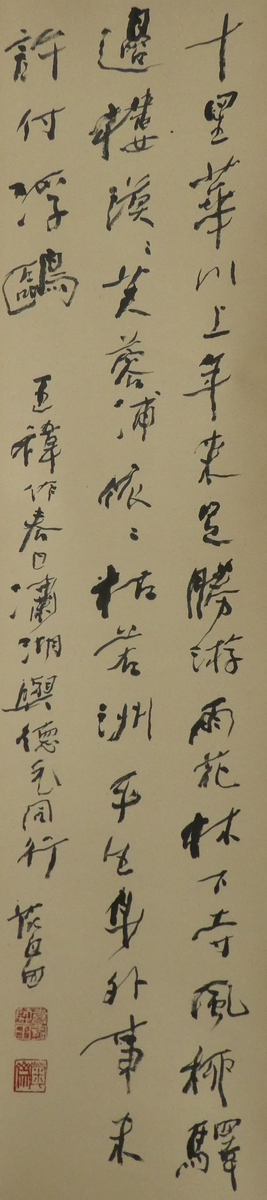 十里華川上年來足勝游雨花林下寺風柳驛
邊樓漠〻芙蓉浦依〻枯若洲平生身外事未
許付浮鷗 王禕作春日瀟湖與德元同行